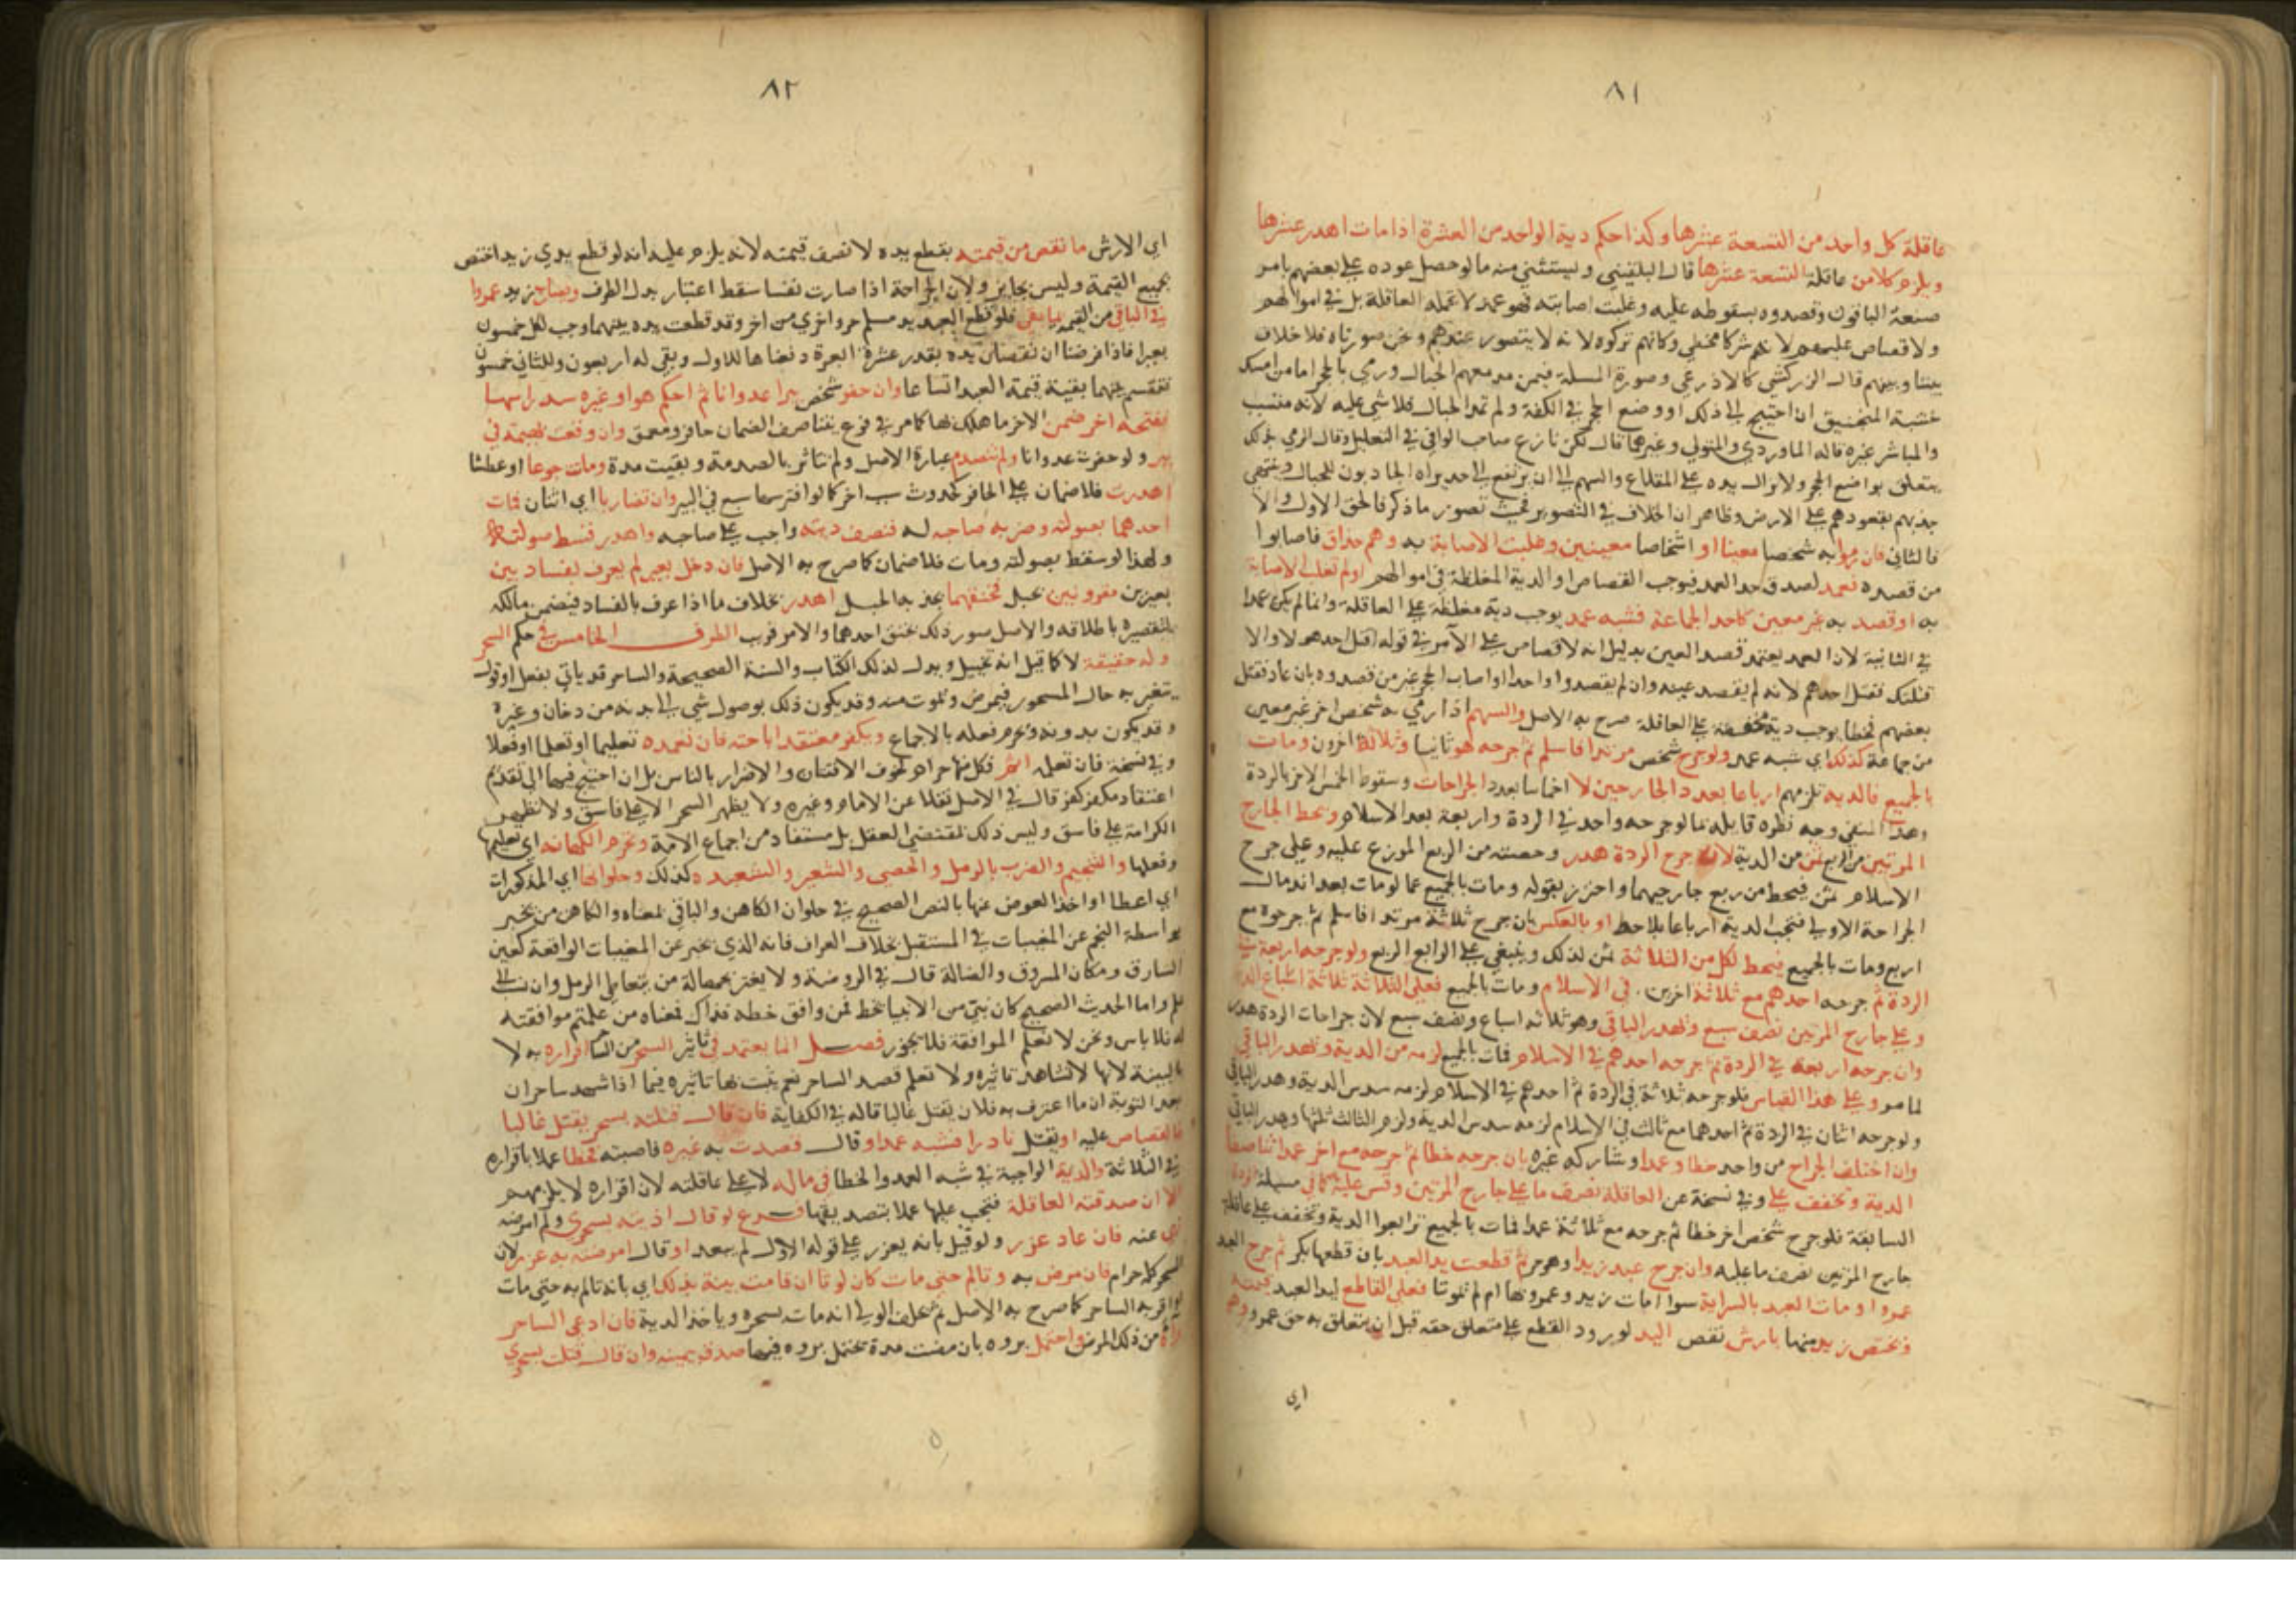 ٨١
عاقلة كل واحد من التسعة عشرها وكذا حكم دية الواحد من العشرة اذا مات اهدر عشرها
ويلزم كلا من عاقلة التسعة عشرها قال البلقيني ويستثني منه ما لو حصل عوده على بعضهم بامر
صنعه الباقون وقصدوه بسقوطه عليه وغلبت اصابته فهو عمد لا تحمله العاقلة بل في اموالهم
ولا قصاص عليهم لانهم شركا مخطي وكانهم تركوه لانه لا يتصور عندهم ونحن صورناه فلا خلاف
بيننا وبينهم قال الزركشي كالاذرعي وصورة المسلة فيمن مد معهم الحبال ورمي بالحجر اما من امسك
خشبة المنجنيق ان احتيج الى ذلك او وضع الحجر في الكفة ولم يمد الحبال فلا شي عليه لانه متسبب
والمباشر غيره قاله الماوردي والمتولي وغيرهما قال لكن نازع صاحب الوافي في التعليل وقال الرمي بذلك
يتعلق بواضع الحجر ولا تزال يده على المقلاع والسهم الى ان يرتفع الى حد يراه الجاذبون للحبال وينتهي
جذبهم بقعودهم على الارض وظاهر ان الخلاف في التصوير فحيث تصور ما ذكر فالحق الاول والا
فالثاني فان رموا به شخصا معينا او اشخاصا معينين وغلبت الاصابة به وهم حذاق فاصابوا
من قصدوه فعمد لصدق حد العمد فيوجب القصاص او الدية المغلظة في اموالهم او لم تغلب الاصابة
به او قصد به غير معين كاحد الجماعة فشبه عمد يوجب دية مغلظة على العاقلة وانما لم يكن عمدا
في الثانية لان العمد يعتمد قصد العين بدليل انه لا قصاص على الآمر في قوله اقتل احدهم لا والا
قتلتك فقتل احدهم لانه لم يقصد عينه وان لم يقصدوا واحدا او اصاب الحجر غير من قصدوه بان عاد فقتل
بعضهم فخطا يوجب دية مخففة على العاقلة صرح به الاصل والسهم اذا رمي به شخص اخر غير معين
من جماعة كذلك اي شبه عمد ولو جرح شخص مرتدا فاسلم ثم جرحه هو ثانيا وثلاثة اخرون ومات
بالجميع فالدية تلزمهم ارباعا بعدد الجارحين لا اخماسا بعدد الجراحات وسقوط الخمس الاخر بالردة
وهذا المنفي وجه نظره قابله بما لو جرحه واحد في الردة واربعة بعد الاسلام ويحط الجارح
المرتين من الربع ثمن من الدية لان جرح الردة هدر وحصته من الربع الموزع عليه وعلى جرح
الاسلام ثمن فيحط من ربع جارحهما واحترز بقوله ومات بالجميع عما لو مات بعد اندمال
الجراحة الاولى فتجب الدية ارباعا بلا حط او بالعكس بان جرح ثلاثة مرتدا فاسلم ثم جرحوه مع
اربع ومات بالجميع فيحط لكل من الثلاثة ثمن لذلك ويبقي على الرابع الربع ولو جرحه اربعة في
الردة ثم جرحه احدهم مع ثلاثة اخرين في الاسلام ومات بالجميع فعلى الثلاثة ثلاثة اسباع الدية
وعلى جارح المرتين نصف سبع ويهدر الباقي وهو ثلاثة اسباع ونصف سبع لان جراحات الردة هدر
وان جرحه اربعة في الردة ثم جرحه احدهم في الاسلام فمات بالجميع لزمه ثمن الدية ويهدر الباقي
لما مر وعلى هذا القياس فلو جرحه ثلاثة في الردة ثم احدهم في الاسلام لزمه سدس الدية وهدر الباقي
ولو جرحه اثنان في الردة ثم احدهما مع ثالث في الاسلام لزمه سدس الدية ولزم الثالث ثلثها وهدر الباقي
وان اختلف الجراح من واحد خطا وعمدا وشاركه غيره بان جرحه خطا ثم جرحه مع اخر عمدا تناصفا
الدية وتخفف على وفي نسخة عن العاقلة نصف ما على جارح المرتين وقس عليه كما في مسيلة الردة
السابقة فلو جرح شخص اخر خطا ثم جرحه مع ثلاثة عمدا فمات بالجميع تزابعوا الدية وتخفف على عاقلة
جارح المرتين نصف ما عليه وان جرح عبد زيدا وهو حر ثم قطعت يد العبد بان قطعها بكر ثم جرح العبد
عمروا ومات العبد بالسراية سوا مات زيد وعمرو بها ام لم يموتا فعلى القاطع ليد العبد قيمته
ويختص زيد منها بارش نقص اليد لورود القطع على متعلق حقه قبل ان يتعلق به حق عمرو وهو
اي
٨٢
اي الارش ما نقص من قيمته بقطع يده لا نصف قيمته لانه يلزم عليه انه لو قطع يدي زيد اختص
بجميع القيمة وليس بجايز ولان الجراحة اذا صارت نفسا سقط اعتبار بدل الطرف ويضارب زيد عمروا
في الباقي من القيمة بما بقي فلو قطع العبد يد مسلم حر واخري من اخر وقد قطعت يده بينهما وجب لكل خمسون
بعيرا فاذا فرضنا ان نقصان يده بقدر عشرة ابعرة دفعناها للاول وبقي له اربعون وللثاني خمسون
تقتسم بينهما بقية قيمة العبد اتساعا وان حفر شخص بيرا عدوانا ثم احكم هو او غيره سد راسها
ففتحه اخر ضمن الاخر ما هلك بها كما مر في فرع يتناصف الضمان حافر ومعمق وان وقعت بهيمة في
بير ولو حفرت عدوانا ولم تنصدم عبارة الاصل ولم تتاثر بالصدمة وبقيت مدة وماتت جوعا او عطشا
اهدرت فلا ضمان على الحافر لحدوث سبب اخر كما لو افترسها سبع في البير وان تضاربا اي اثنان فمات
احدهما بصولته وضربه صاحبه له فنصف ديته واجب على صاحبه واهدر قسط صولته
ولهذا لو سقط بصولته ومات فلا ضمان كما صرح به الاصل فان دخل بعير لم يعرف بفساد بين
بعيرين مقرونين بحبل فخنقهما بجذبه الحبل اهدر بخلاف ما اذا عرف بالفساد فيضمن مالكه
بتقصيره باطلاقه والاصل صور ذلك بخنق احدهما والامر قريب الطرف الخامس في حكم السحر
وله حقيقة لا كما قيل انه تخييل ويدل لذلك الكتاب والسنة الصحيحة والساحر قد ياتي بفعل او قول
يتغير به حال المسحور فيمرض ويموت منه وقد يكون ذلك بوصول شي الى بدنه من دخان وغيره
وقد يكون بدونه ويحرم فعله بالاجماع ويكفر معتقد اباحته فان تعمده تعليما او تعلما او فعلا
وفي نسخة فان تعلمه اثم فكل منها حرام لخوف الافتتان والاضرار بالناس بل ان احتيج فيهما الى تقديم
اعتقاد مكفر كفر قال في الاصل نقلا عن الامام وغيره ولا يظهر السحر الا على فاسق ولا تظهر
الكرامة على فاسق وليس ذلك لمقتضى العقل بل مستفاد من اجماع الامة ويحرم الكهانة اي تعليمها
وفعلها والتنجيم والضرب بالرمل والحصى والشعير والشعبدة كذلك وحلوانها اي المذكورات
اي اعطا او اخذ العوض عنها بالنص الصحيح في حلوان الكاهن والباقي بمعناه والكاهن من يخبر
بواسطة النجم عن المغيبات في المستقبل بخلاف العراف فانه الذي يخبر عن المغيبات الواقعة كعين
السارق ومكان المسروق والضالة قال في الروضة ولا يغتر بجهالة من يتعاطى الرمل وان نسب الى
علم واما الحديث الصحيح كان نبي من الانبياء يخط فمن وافق خطه فذاك فمعناه من علمتم موافقته
له فلا باس ونحن لا نعلم الموافقة فلا يجوز فصل انما يعتمد في تاثير السحر من الساحر اقراره به لا
بالبينة لانها لا تشاهد تاثيره ولا تعلم قصد الساحر نعم يثبت بها تاثيره فيما اذا شهد ساحران
بعد التوبة ان ما اعترف به فلان يقتل غالبا قاله في الكفاية فان قال قتلته بسحر يقتل غالبا
فالقصاص عليه او يقتل نادرا فشبه عمد او قال قصدت به غيره فاصبته فخطا عملا باقراره
في الثلاثة والدية الواجبة في شبه العمد والخطا في ماله لا على عاقلته لان اقراره لا يلزمهم
الا ان صدقته العاقلة فتجب عليها عملا بتصديقها فرع لو قال اذيته بسحري ولم امرضه
نهي عنه فان عاد عزر ولو قيل بانه يعزر على قوله الاول لم يبعد او قال امرضته به عزر لان
السحر كله حرام فان مرض به وتالم حتى مات كان لوثا ان قامت بينة بذلك اي بانه تالم به حتى مات
او اقر به الساحر كما صرح به الاصل ثم يحلف الولي انه مات بسحره وياخذ الدية فان ادعى الساحر
براه من ذلك المرض واحتمل بروه بان مضت مدة يحتمل بروه فيها صدق بيمينه وان قال قتلت بسحري